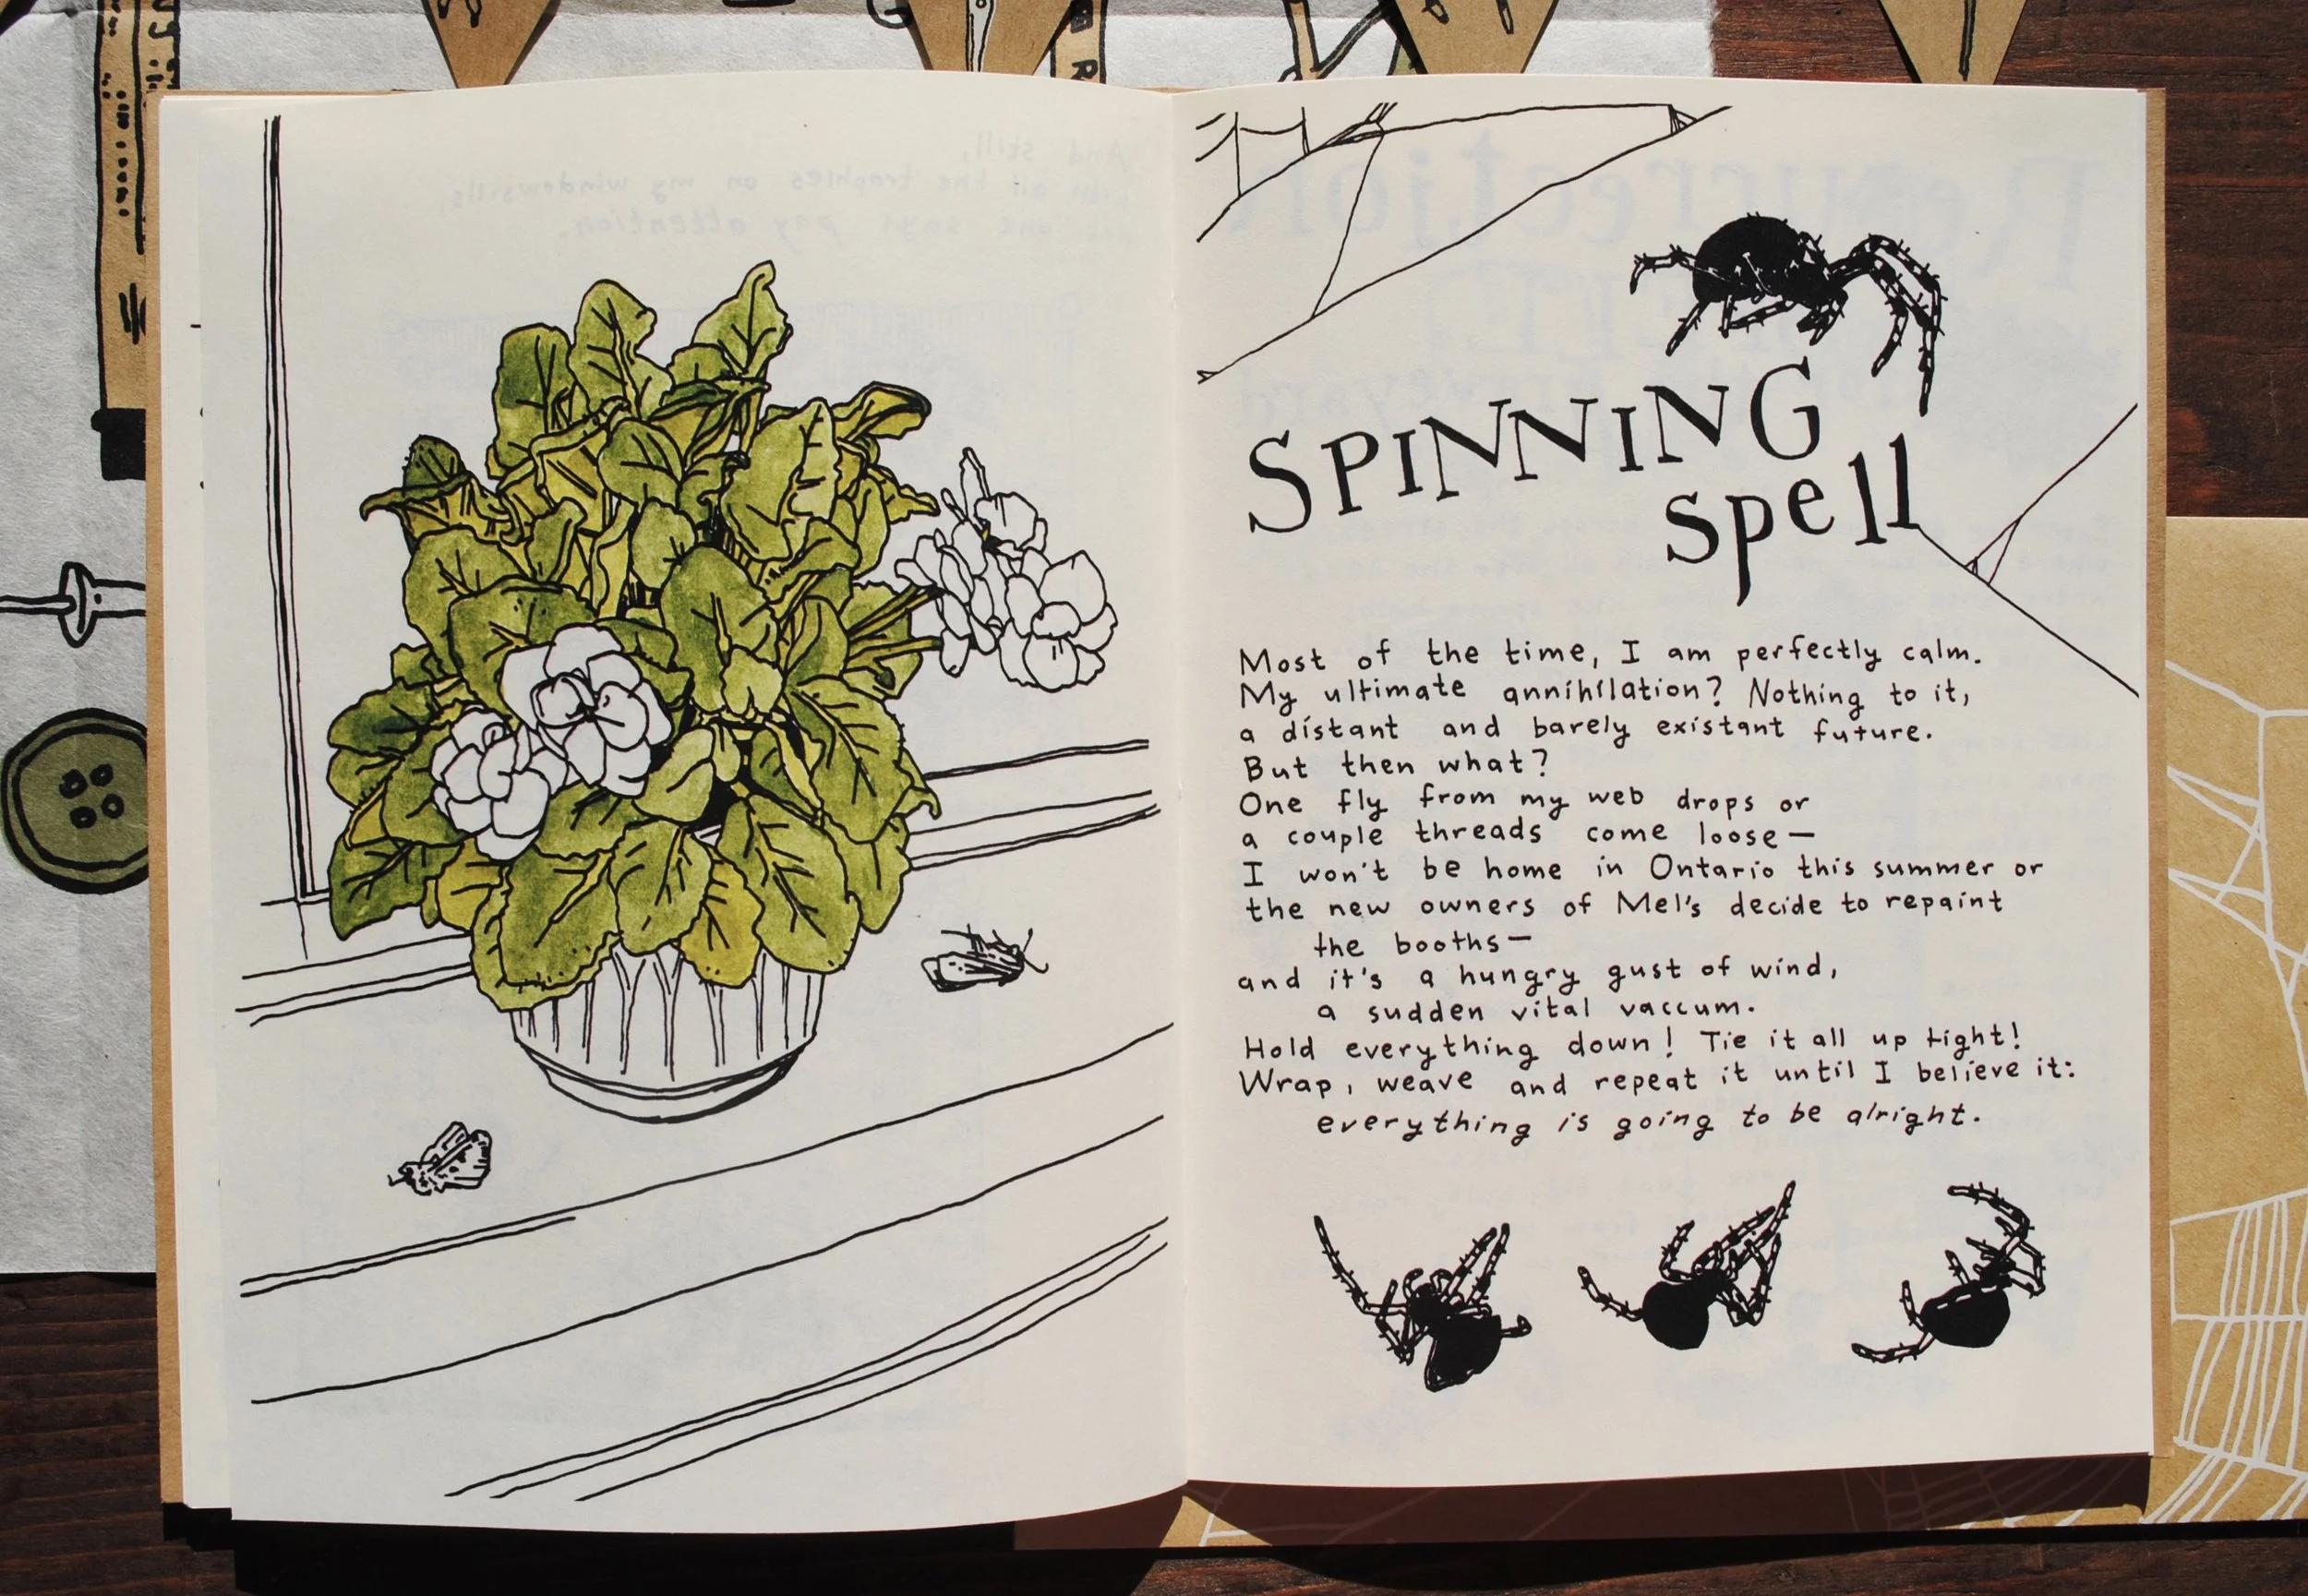 And still,
all the trophies on my windowsills,
one says pay attention.
Resurrection
SPINNING
spell
Most of the time, I am perfectly calm.
My ultimate annihilation? Nothing to it,
a distant and barely existant future.
But then what?
One fly from my web drops or
a couple threads come loose—
I won't be home in Ontario this summer or
the new owners of Mel's decide to repaint
the booths—
and it's a hungry gust of wind,
a sudden vital vaccum.
Hold everything down! Tie it all up tight!
Wrap, weave and repeat it until I believe it:
everything is going to be alright.